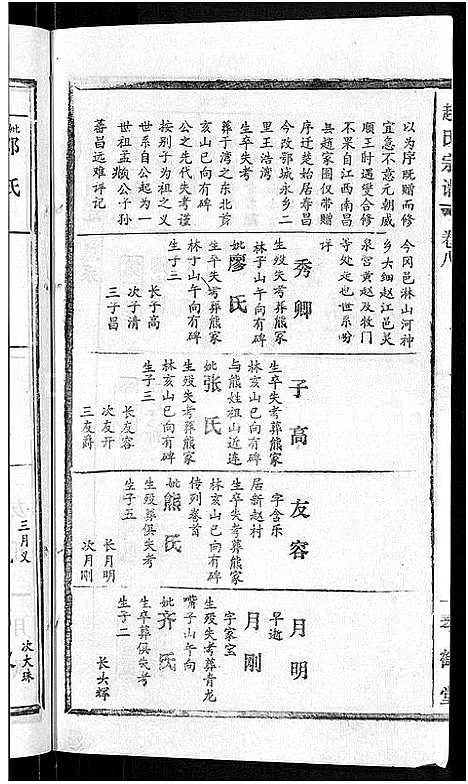 赵氏宗谱 卷八
琴鹤堂
以为序既赠而修
宜急不意元朝威
顺王时遇燮合修
不果自江西南昌
县赵家囿仅带赠
序迁楚始居寿昌
今改鄂城永乡二
里王浩湾
生卒失考
葬于湾之东北首
亥山巳向有碑
公之先代失考谨
按别子为祖之义
世系自公起为一
世祖孟頫公子孙
蕃昌远难详记
今冈邑淋山河神
乡大细赵江邑灵
泉宫黄赵及牧门
等处定也世系吩
详
秀卿
生殁失考葬熊家
林子山午向有碑
妣廖氏
生卒失考葬熊家
林子山午向有碑
生子三
长子高
次子清
三子昌
子高
生卒失考葬熊家
林亥山巳向有碑
与熊姓祖山近连
妣张氏
生殁失考葬熊家
林亥山巳向有碑
生子三
长友容
次友开
三友爵
友容
字含乐
居新赵村
生卒失考葬熊家
林亥山巳向有碑
传列卷首
妣熊氏
生殁葬俱失考
生子五
长月明
次月刚
三月义
月明
早逝
月刚
字家宝
生殁失考葬青龙
嘴子山午向
妣齐氏
生卒葬俱失考
生子二
长大辉
次大珠
妣郭氏